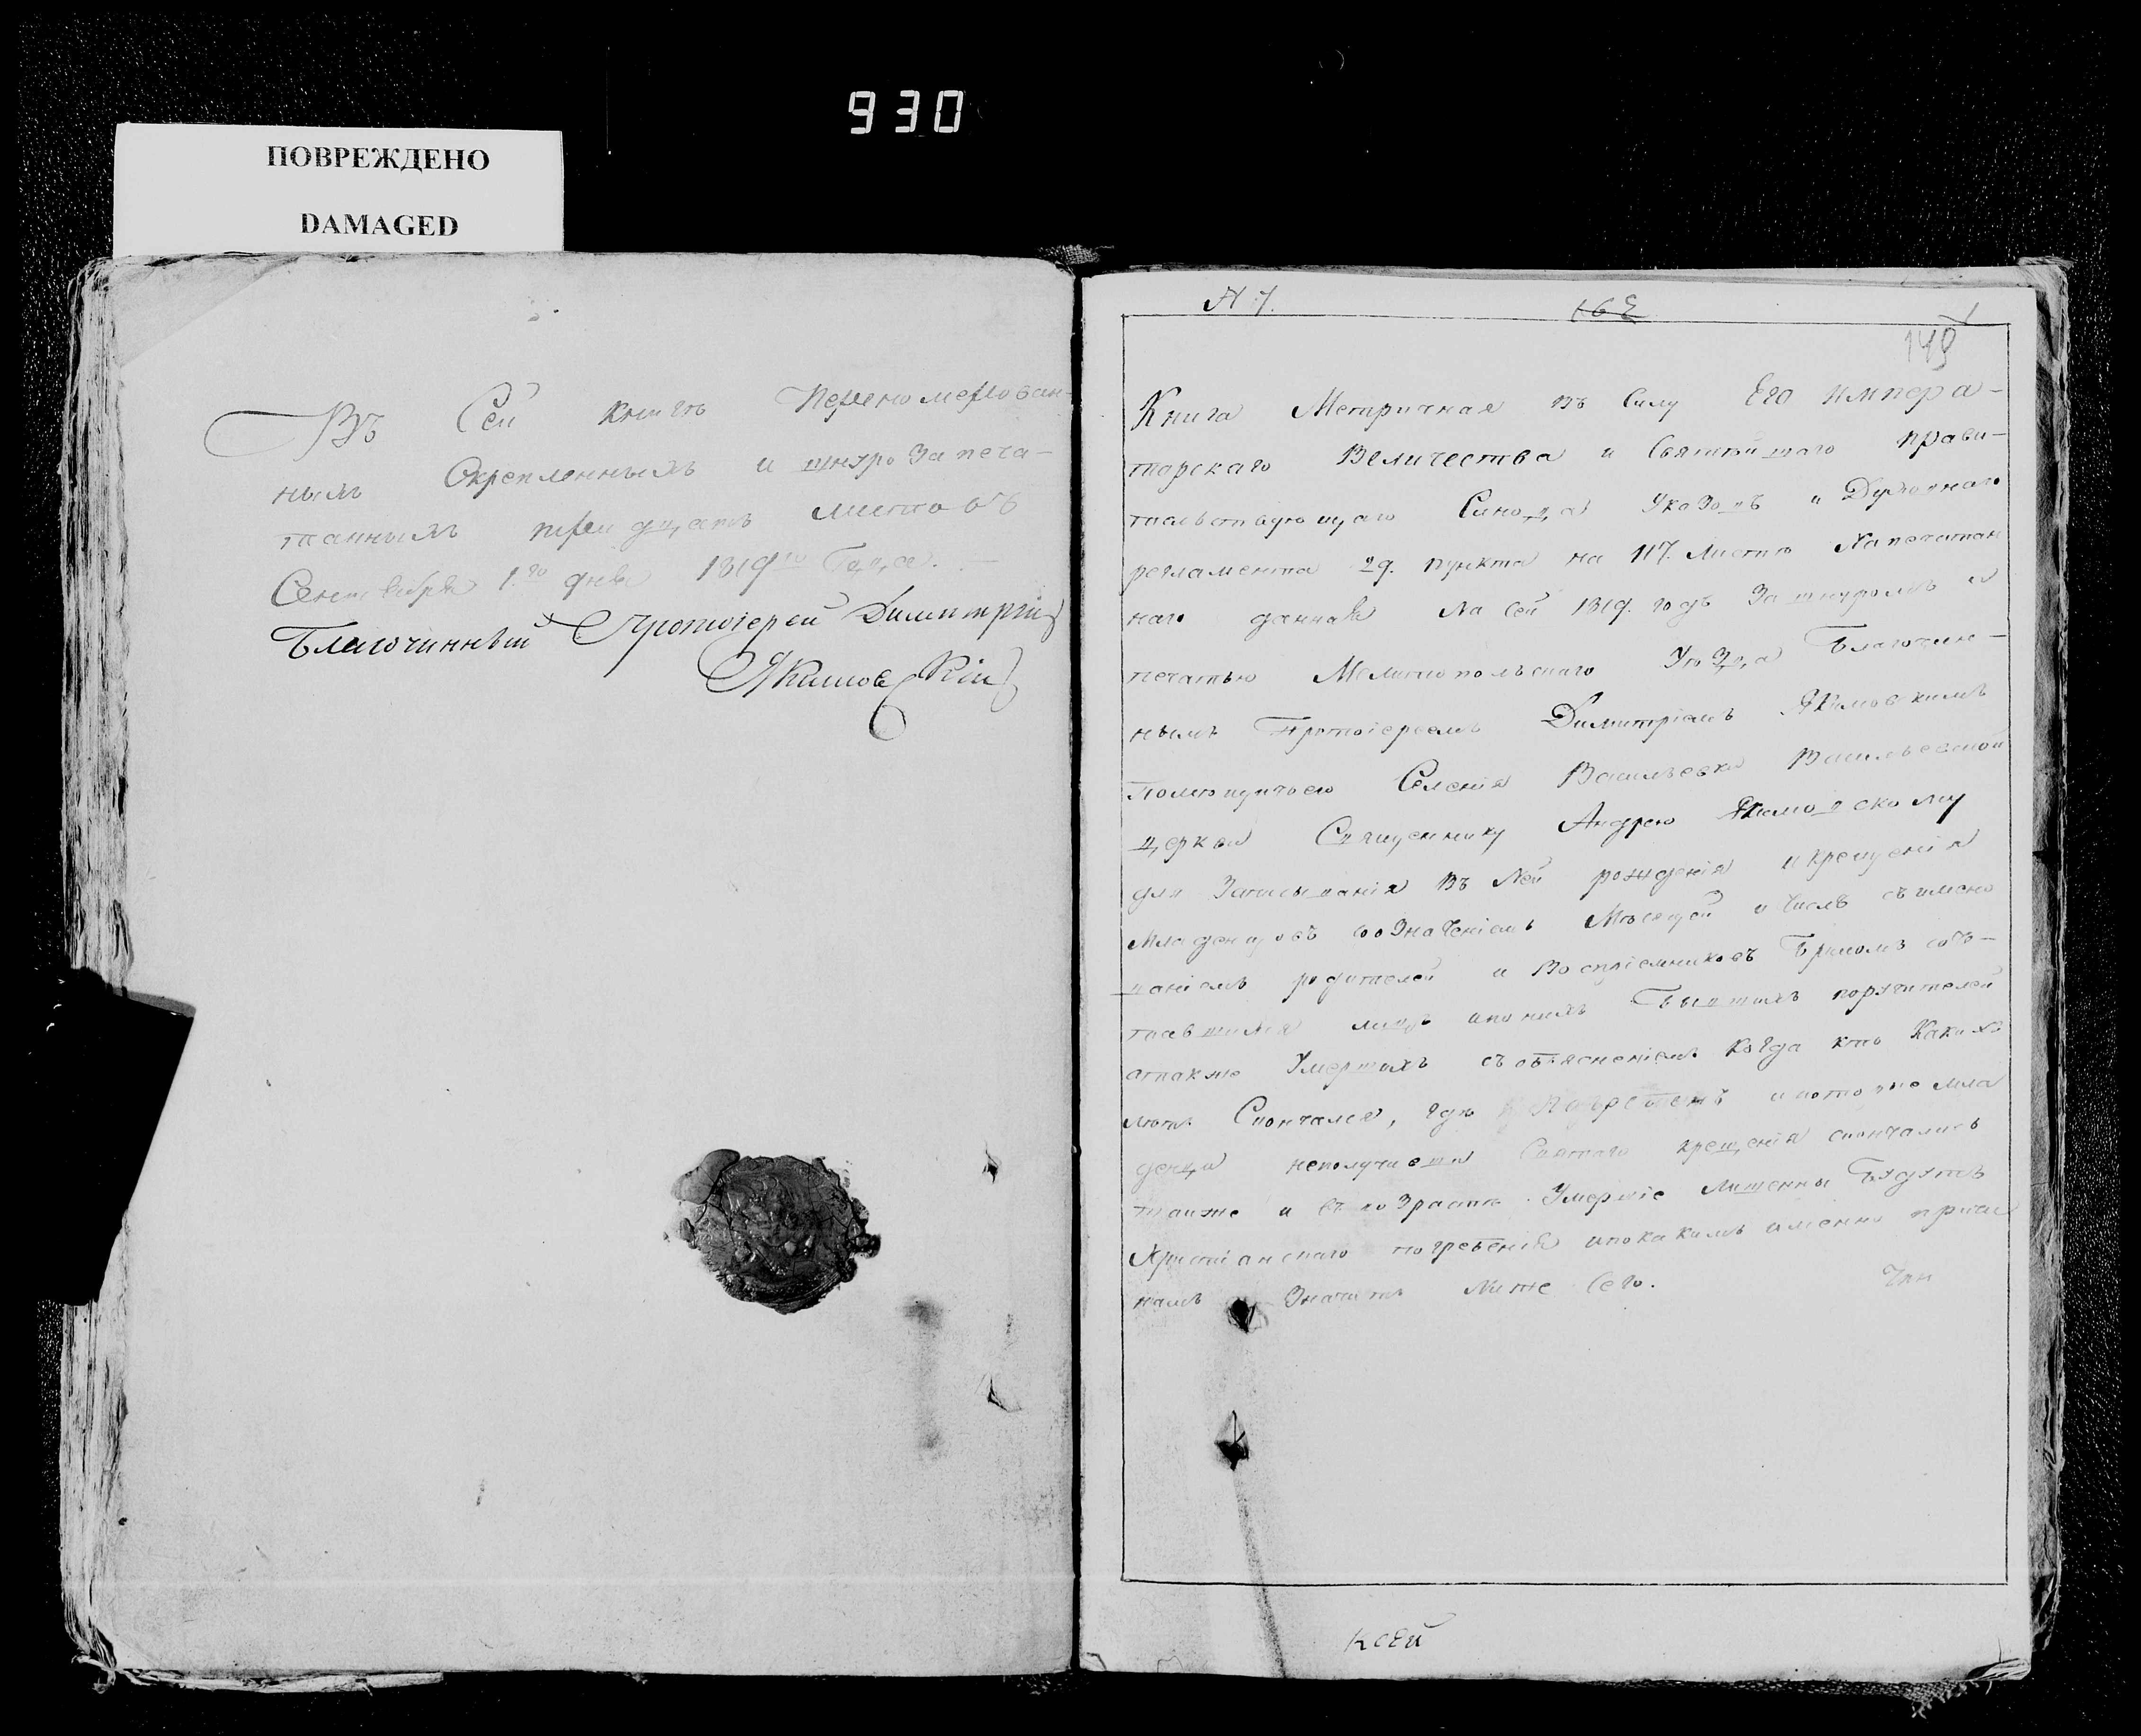 930
ПОВРЕЖДЕНО
DAMAGED
Въ Сей книгѣ Перенумерован-
нымъ Скрепленнымъ и шнуро запеча-
таннымъ тритцать листовъ
Сентября 1.го дня 1819го Года. —
Благочинный Протоіерей Димитрій
Якимовскій
N 7.
149
Книга Метричная въ Силу Его Импера-
торскаго Величества и Святѣйшаго прави-
тельствующаго Синода Указовъ и Духовнаго
регламента 29. пункта на 117. Листѣ Напечатан
наго данная На Сей 1819. годъ За шнуромъ и
печатью Мелитопольскаго Уѣзда Благочин-
нымъ Протоіереемъ Димитріемъ Якимовскимъ
Селенія Васильевки Васильевской
церкви Священнику Андрею Якимовскому
для Записыванія въ Ней рожденія и крещенія
Младенцовъ со означеніемъ Мѣсяцей и Числъ съ имено
ваніемъ родителей и Воспріемниковъ Бракомъ соче-
тавшихся лицъ и по нихъ бывшихъ поручителей
а также Умершихъ съ объясненіемъ когда кто Какихъ
лѣтъ Скончался, гдѣ Погребенъ и которые мла
денцы неполучивши Святаго крещенія скончались
также и въ возрастѣ Умершіе Лишенны Будутъ
Христіанскаго погребенія и по какимъ именно причи
намъ Значитъ Ниже Сего.
К сей